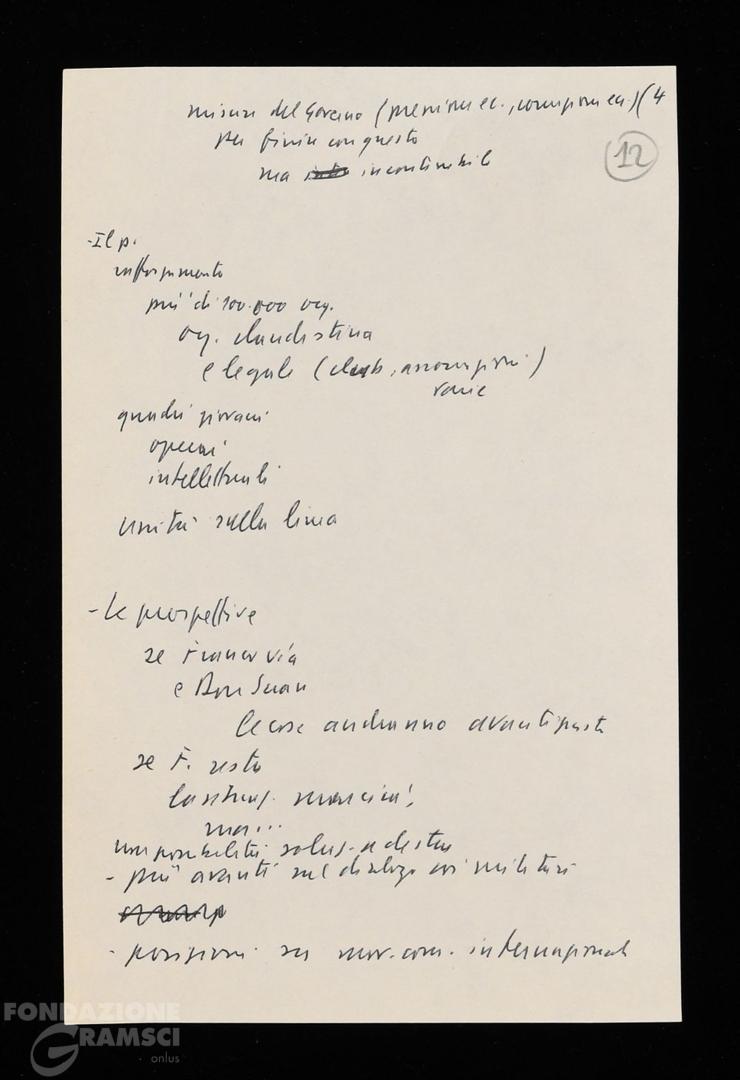 misure del Governo (pressioni ec., corruzioni ecc.) (4
per finire con questo
12
ma incontenibile
- Il p.
rafforzamento
più di 100.000 org.
org. clandestina
e legale (club, associazioni)
varie
quadri giovani
operai
intellettuali
unità sulla linea
- Le prospettive
se Franco via
e Don Juan
le cose andranno avanti presto
se F. resta
la situaz. marcirà,
ma...
una possibilità soluz. a destra
- più avanti sul dialogo coi militari
- posizioni su mov. com. internazionale
FONDAZIONE
GRAMSCI
onlus